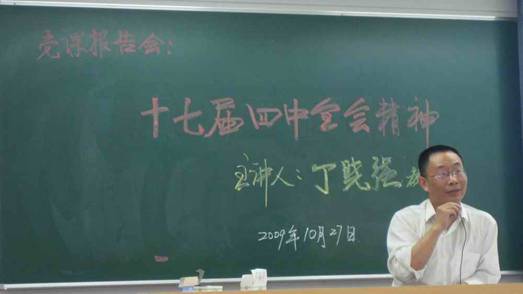 党课报告会：
十七届四中全会精神
主讲人：丁晓强
2009年10月27日